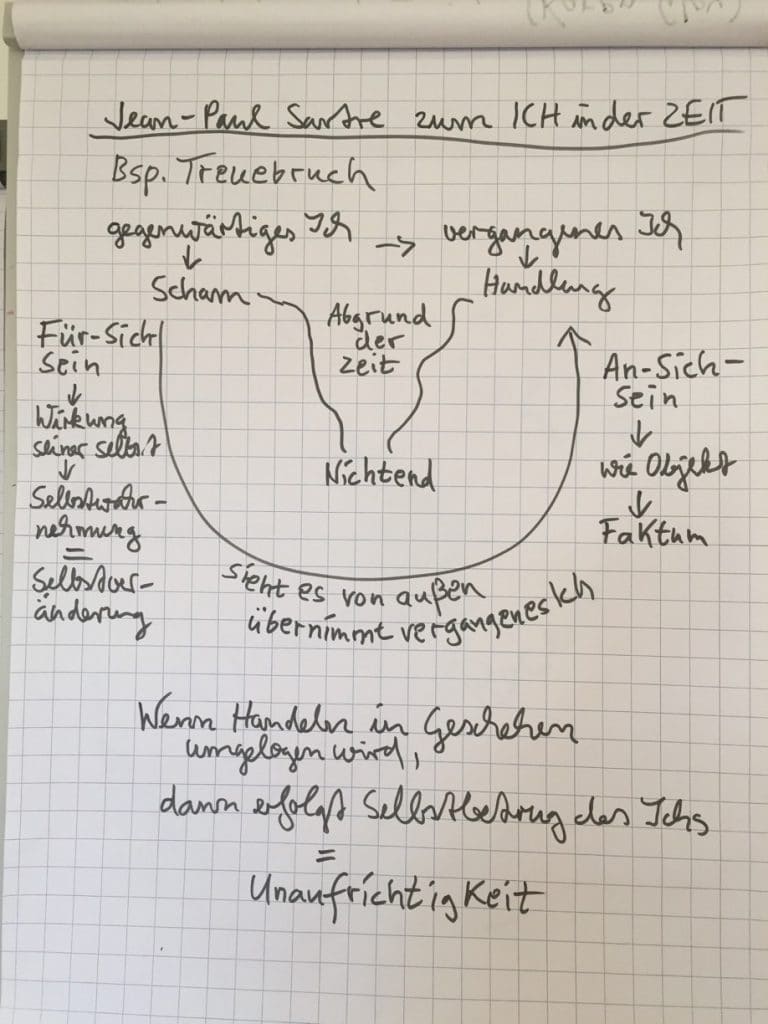 Jean-Paul Sartre zum ICH in der ZEIT
Bsp. Treuebruch
gegenwärtiges Ich → vergangenes Ich
↓ ↓
Scham Handlung
Abgrund
der
Zeit
Nichtend
Für-Sich
Sein
↓
Wirkung
seiner selbst
↓
Selbstwahr-
nehmung
=
Selbstver-
änderung
An-Sich-
Sein
↓
wie Objekt
↓
Faktum
sieht es von außen
übernimmt vergangenes Ich
Wenn Handeln in Geschehen
umgelogen wird,
dann erfolgt Selbstbetrug des Ichs
=
Unaufrichtigkeit